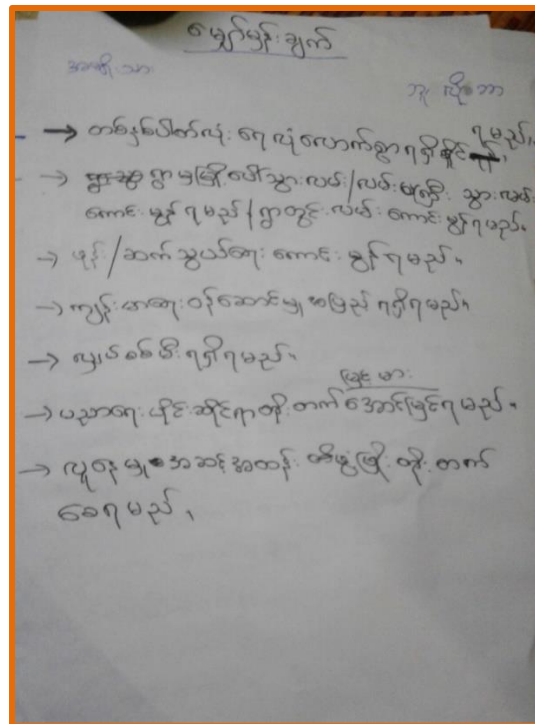 မျှော်မှန်းချက်
အမျိုးသား
ဘူ လို ဘာ
→ တစ်နှစ်ပါတ်လုံး ရေ လုံလောက်စွာ ရရှိနိုင် ရမည်၊
→ ရွာမှမြို့ပေါ်သွားလမ်း/လမ်းမကြီး သွားလမ်း
ကောင်းမွန်ရမည်/ရွာတွင်းလမ်းကောင်းမွန်ရမည်။
→ ဖုန်း/ဆက်သွယ်ရေး ကောင်းမွန်ရမည်။
→ ကျန်းမာရေးဝန်ဆောင်မှု အပြည့် ရရှိရမည်။
→ လျှပ်စစ်မီးရရှိရမည်။
→ ပညာရေးပိုင်းဆိုင်ရာ တိုးတက် အောင်မြင်ရမည်။
မြင့်မား
→ လူနေမှု အဆင့်အတန်း ဖွံ့ဖြိုး တိုးတက်
စေရမည်၊